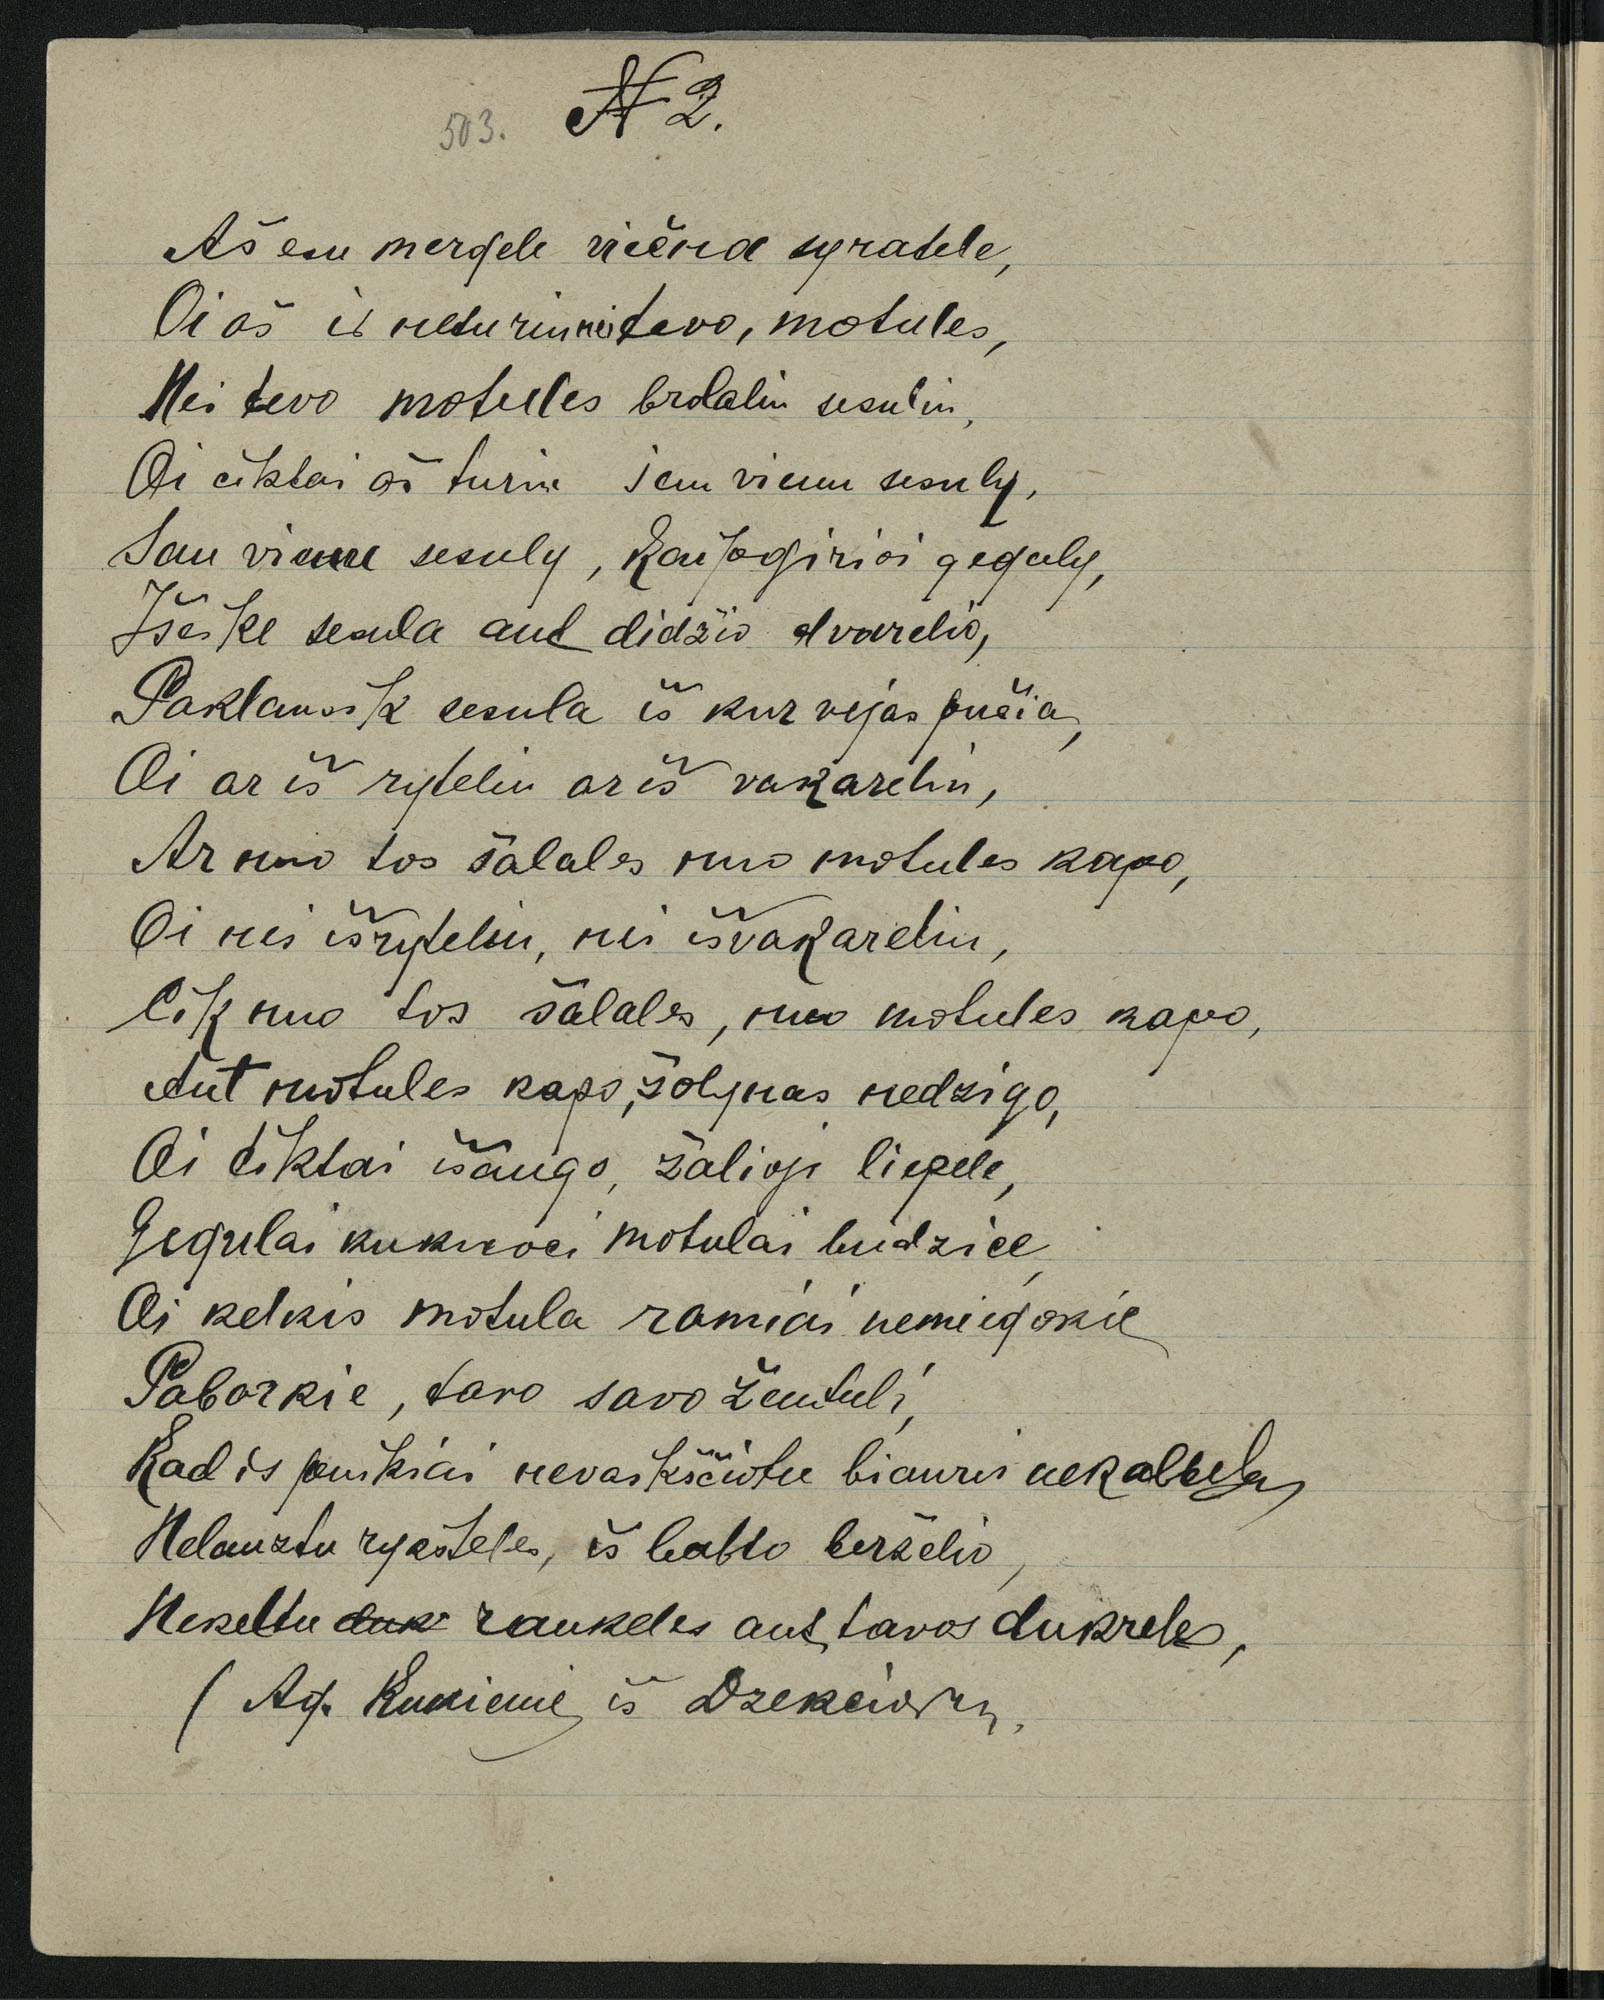 503. N 2.
Aš esu mergele viena syratele,
Oi aš ir neturiu nei tevo, motules,
Nei tevo motules brolaliu sesuliu,
Oi ciktai aš turiu jau vienu sesuly,
Jau vienu sesuly, kaipo girioi geguly,
Išeike sesula ant didžio dvarelio,
Paklausik sesula iš kur vejas pučia,
Oi ar iš ryteliu ar iš vakareliu,
Ar nuo tos šalales nuo motules kapo,
Oi nei iš ryteliu, nei iš vakareliu,
Cik nuo tos šalales, nuo motules kapo,
Ant motules kapo, žolynas nedzigo,
Oi ciktai išaugo, žalioji liepele,
Gegulai kukuoci motulai budzice,
Oi kelkis motula ramiai nemiegokie
Paborkie, tavo savo žentuli,
Kad is puikiai nevaikščiotu biauriai nekalbetu
Nelaužtu rykšteles, iš balto berželio,
Nekeltu duk rankeles ant tavos dukreles,
( Ag. Kukienie iš Dzekcioriu.